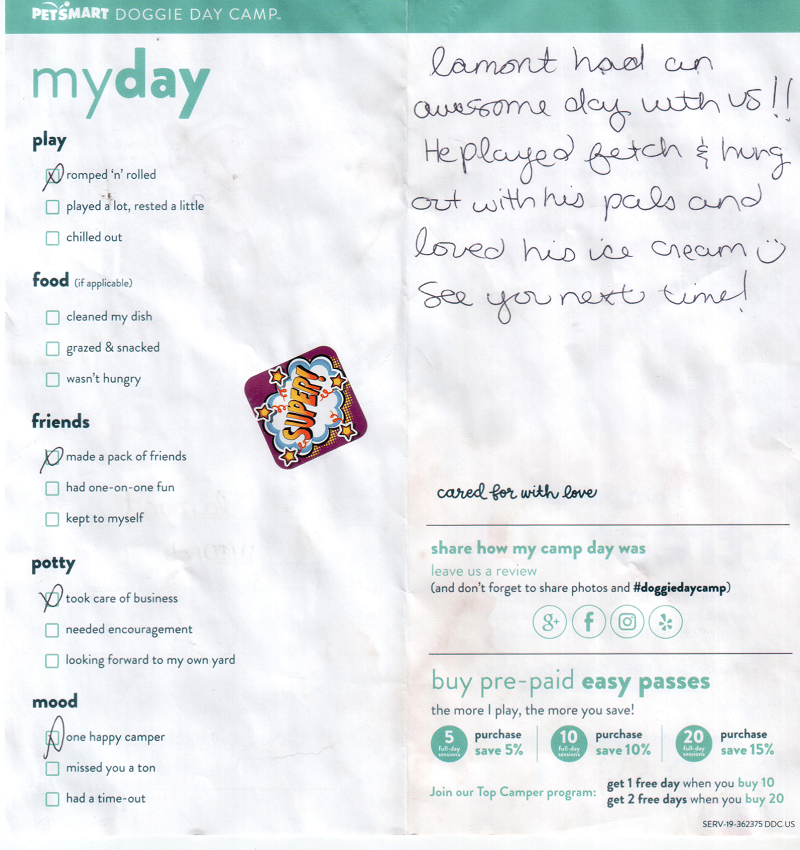 PETSMART DOGGIE DAY CAMP
myday
play
romped 'n' rolled
played a lot, rested a little
chilled out
food (if applicable)
cleaned my dish
grazed & snacked
wasn't hungry
friends
made a pack of friends
had one-on-one fun
kept to myself
potty
took care of business
needed encouragement
looking forward to my own yard
mood
one happy camper
missed you a ton
had a time-out
SUPER!
lamont had an
awesome day with us!!
He played fetch & hung
out with his pals and
loved his ice cream
See you next time!
cared for with love
share how my camp day was
leave us a review
(and don't forget to share photos and #doggiedaycamp)
g+ f
buy pre-paid easy passes
the more I play, the more you save!
5 full-day sessions purchase save 5%
10 full-day sessions purchase save 10%
20 full-day sessions purchase save 15%
Join our Top Camper program: get 1 free day when you buy 10
get 2 free days when you buy 20
SERV-19-362375 DDC US